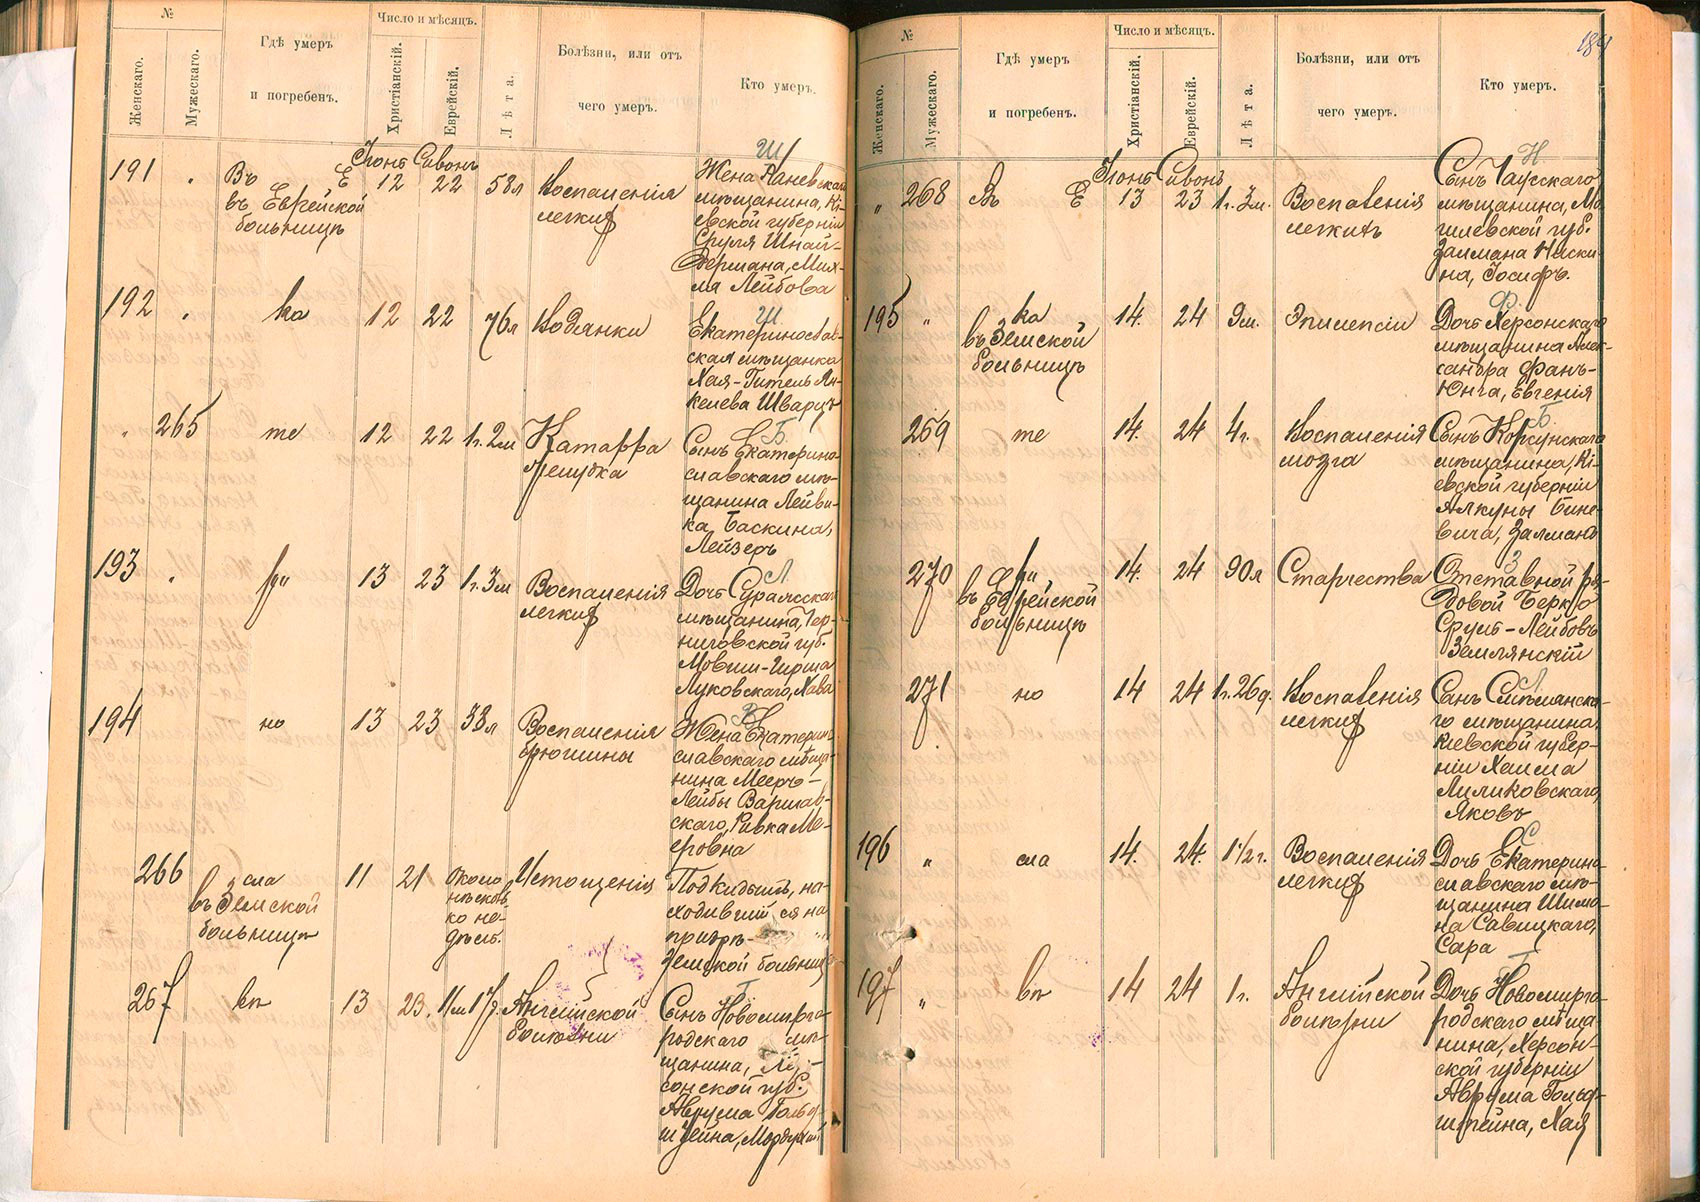 №
Женскаго.
Мужескаго.
Гдѣ умеръ
и погребенъ.
Число и мѣсяцъ.
Христіанскій.
Еврейскій.
Лѣта.
Болѣзни, или отъ
чего умеръ.
Кто умеръ.
Ш
Іюнь Сивонъ
191 Въ Е 12 22 58л Воспаленія
въ Еврейской
больницѣ
легкихъ
Жена
мѣщанина, Кі-
евской губерніи
Сруля Шнай-
дермана, Мих-
ля Лейбова
192 ка 12 22 76л Водянки
Ш
Екатеринослав-
ская мѣщанка
Хая-Гитель Ян-
келева Шварцъ
265 те 12 22 1г. 2м Катарра
желудка
Б.
Сынъ Екатерино-
славскаго мѣ-
щанина Лейви-
ка Баскина,
Лейзеръ
193 ри 13 23 1г. 3м Воспаленія
легкихъ
Л.
Дочь Суражскаго
мѣщанина, Чер-
ниговской губ.
Мовши-Гирша
Луковскаго, Хава
194 но 13 23 38л Воспаленія
брюшины
В
Жена Екатерино-
славскаго мѣща-
нина Мееръ-
Лейбы Варшав-
скаго, Ривка Ме-
еровна
266 сла 11 21 Около
нѣсколь
ко не-
дѣль.
въ Земской
больницѣ
Истощенія
Подкидышъ, на-
ходившійся на
призрѣ-
Земской больницѣ
267 вѣ 13 23. 11м 17д Англійской
болѣзни
Г
Сынъ Новомирго-
родскаго мѣ-
щанина,
сонской губ.
Аврума Гольд-
штейна, Мордухай
№
Женскаго.
Мужескаго.
Гдѣ умеръ
и погребенъ.
Число и мѣсяцъ.
Христіанскій.
Еврейскій.
Лѣта.
Болѣзни, или отъ
чего умеръ.
Кто умеръ.
Н.
Іюнь Сивонъ
„ 268 Въ Е 13 23 1г. 3м. Воспаленія
легкихъ
Сынъ Чаусскаго
мѣщанина, Мо
гилевской губ.
Залмана Наски-
на, Іосифъ.
195 „ ка 14. 24 9м. Эпилепсіи
въ Земской
больницѣ
Ф.
Дочь Херсонскаго
мѣщанина Алек-
сандра Фанъ-
Юнга, Евгенія
269 те 14. 24 4г. Воспаленія
мозга
Б.
Сынъ Корсунскаго
мѣщанина, Кі-
евской губерніи
Алкуны Бине-
вича, Залманъ
270 ри 14. 24 90л Старчества
въ Еврейской
больницѣ
З
Отставной ря-
довой Берко
Сруль-Лейбовъ
Землянскій
271 но 14 24 1г. 26д. Воспаленія
легкихъ
Л
Сынъ Смѣлянска-
го мѣщанина,
Кіевской губер-
ніи Хаима
Лиликовскаго,
Яковъ
196 „ сла 14. 24. 1 1/2 г. Воспаленія
легкихъ
С
Дочь Екатерино-
славскаго мѣ-
щанина Шимо-
на Савицкаго,
Сара
197 „ вѣ 14 24 1г. Англійской
болѣзни
Г
Дочь Новомирго-
родскаго мѣща-
нина, Херсон-
ской губерніи
Аврума Гольд-
штейна, Хая